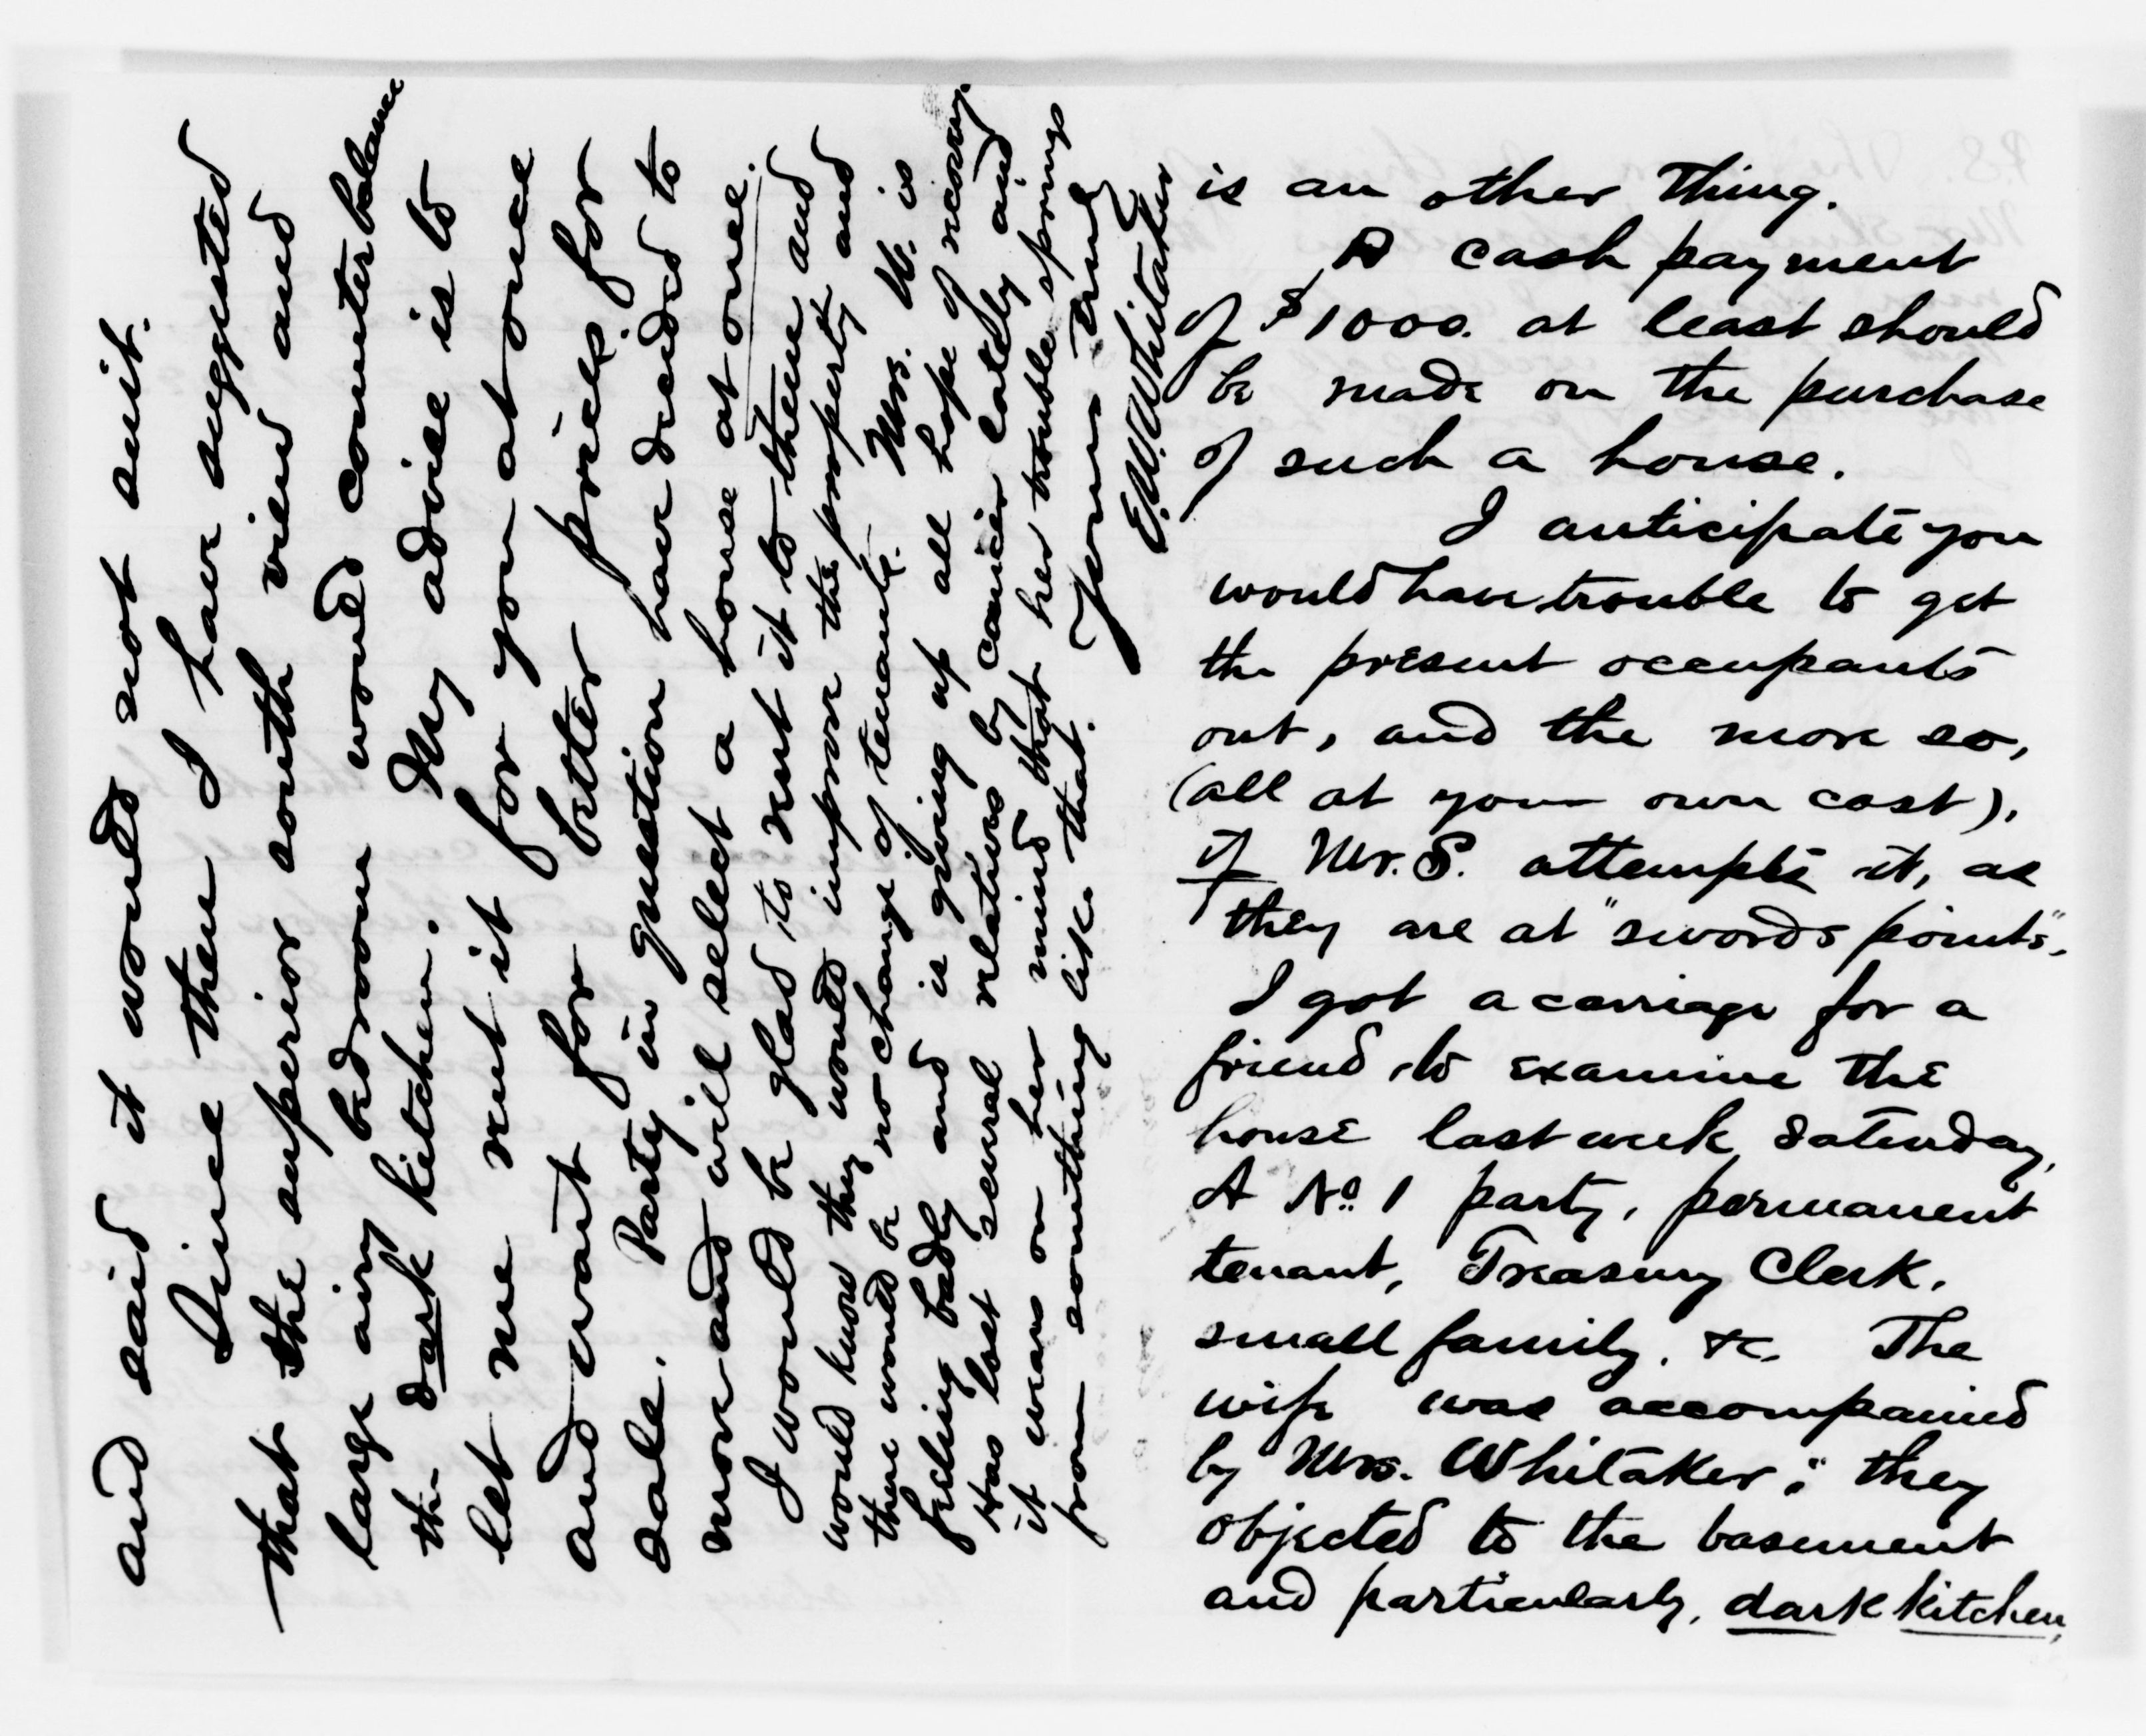 is an other thing.
A cash payment
of $1000. at least should
be made on the purchase
of such a house.
I anticipate you
would have trouble to get
the present occupants
out, and the more so,
(all at your own cost),
if Mr. S. attempts it, as
they are at "swords points".
I got a carriage for a
friend to examine the
house last week Saturday,
A No. 1 party, permanent
tenant, Treasury Clerk,
small family, &c. The
wife was accompanied
by Mrs. Whitaker; they
objected to the basement
and particularly, dark kitchen,
and said it would not suit.
Since then I have suggested
that the superior south view and
large airy bedroom would counterbalance
the dark kitchen. My advice is to
let me rent it for you at once
and wait for better prices for
sale. Party in question have decided to
move and will select a house at once.
I would be glad to rent it to them and
would know they would improve the property and
there would be no change of tenants. Mrs. W. is
feeling badly and is giving up all hope of recovery
Has lost several relatives by cancer lately and
it wears on her mind that her trouble springs
from something like that.
Yours truly
E. W. Whitaker